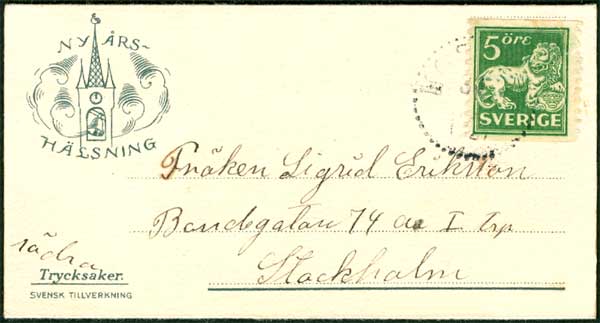 NYÅRS-
HÄLSNING
5 öre
SVERIGE
Fröken Sigrid Erikson
Bondegatan 74 I trp
Stockholm
Trycksaker.
SVENSK TILLVERKNING